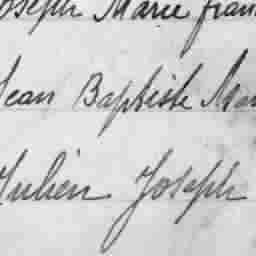 Joseph Marie fran
Jean Baptiste Mar
Julien Joseph